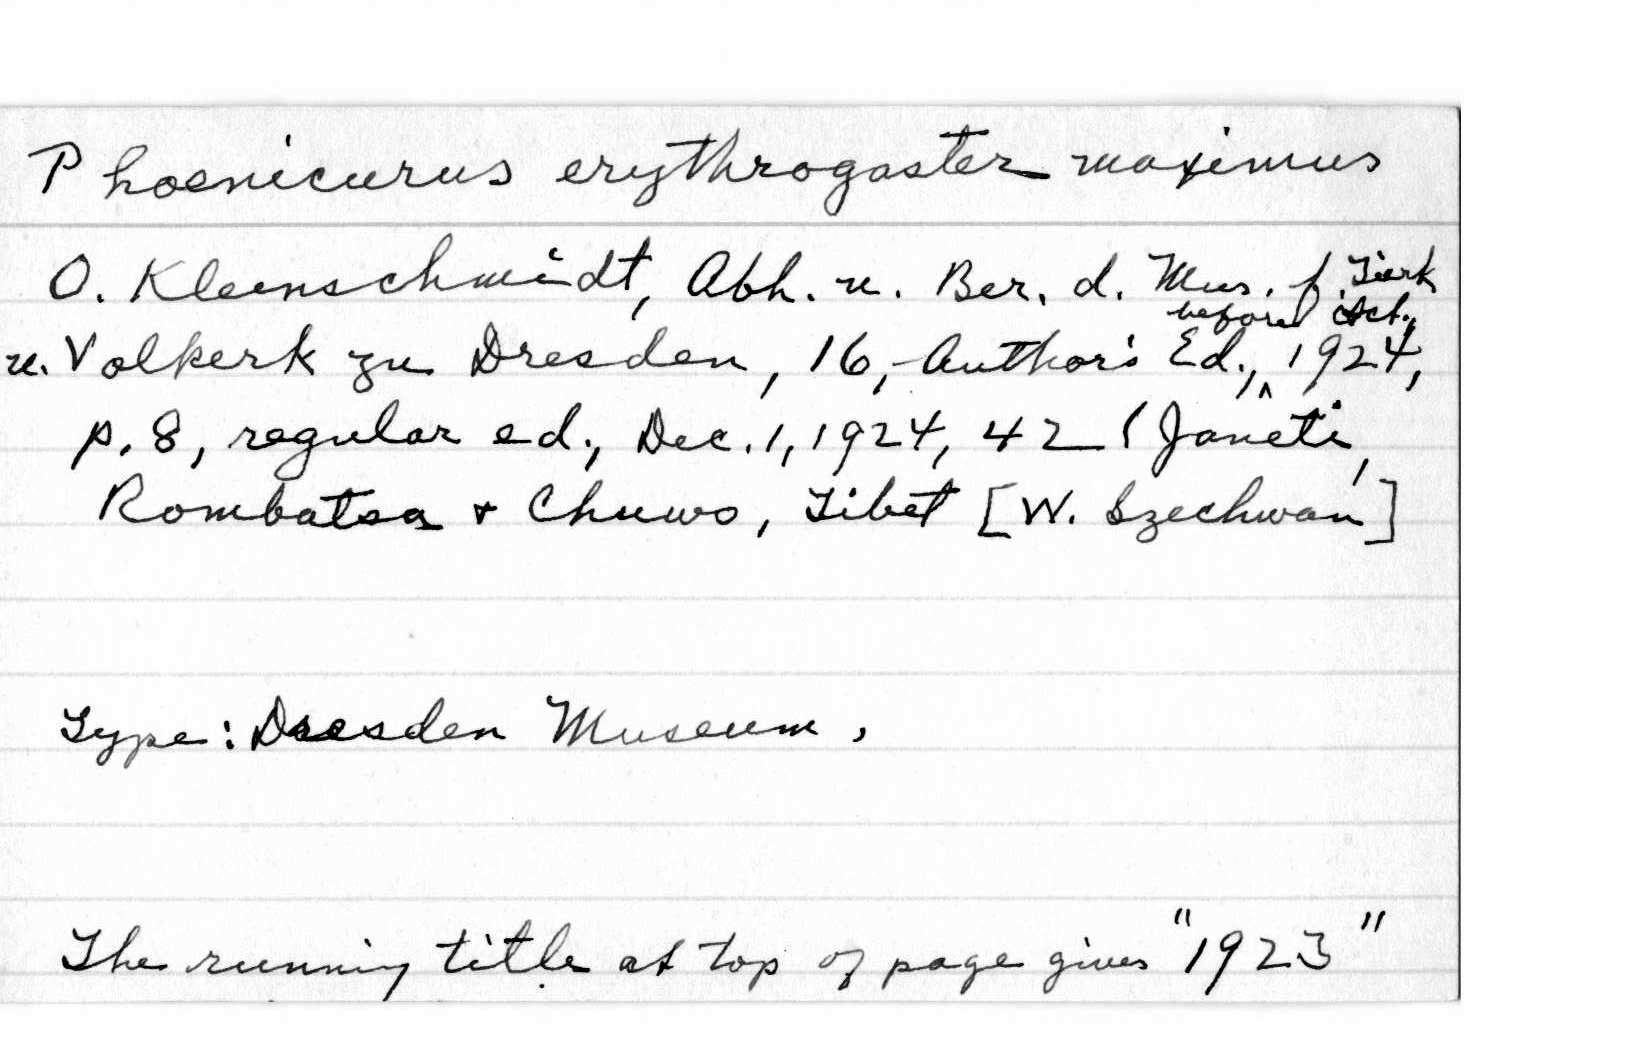 Phoenicurus erythrogaster maximus
O. Kleinschmidt, Abh. u. Ber. d. Mus. f. Tierk
before Oct.,
u. Volkerk zu Dresden, 16, Author's Ed., ^ 1924,
p. 8, regular ed., Dec. 1, 1924, 42 (Janeti,
Rombatsa + Chuwo, Tibet [W. Szechwan]
Type: Dresden Museum,
The running title at top of page gives "1923"